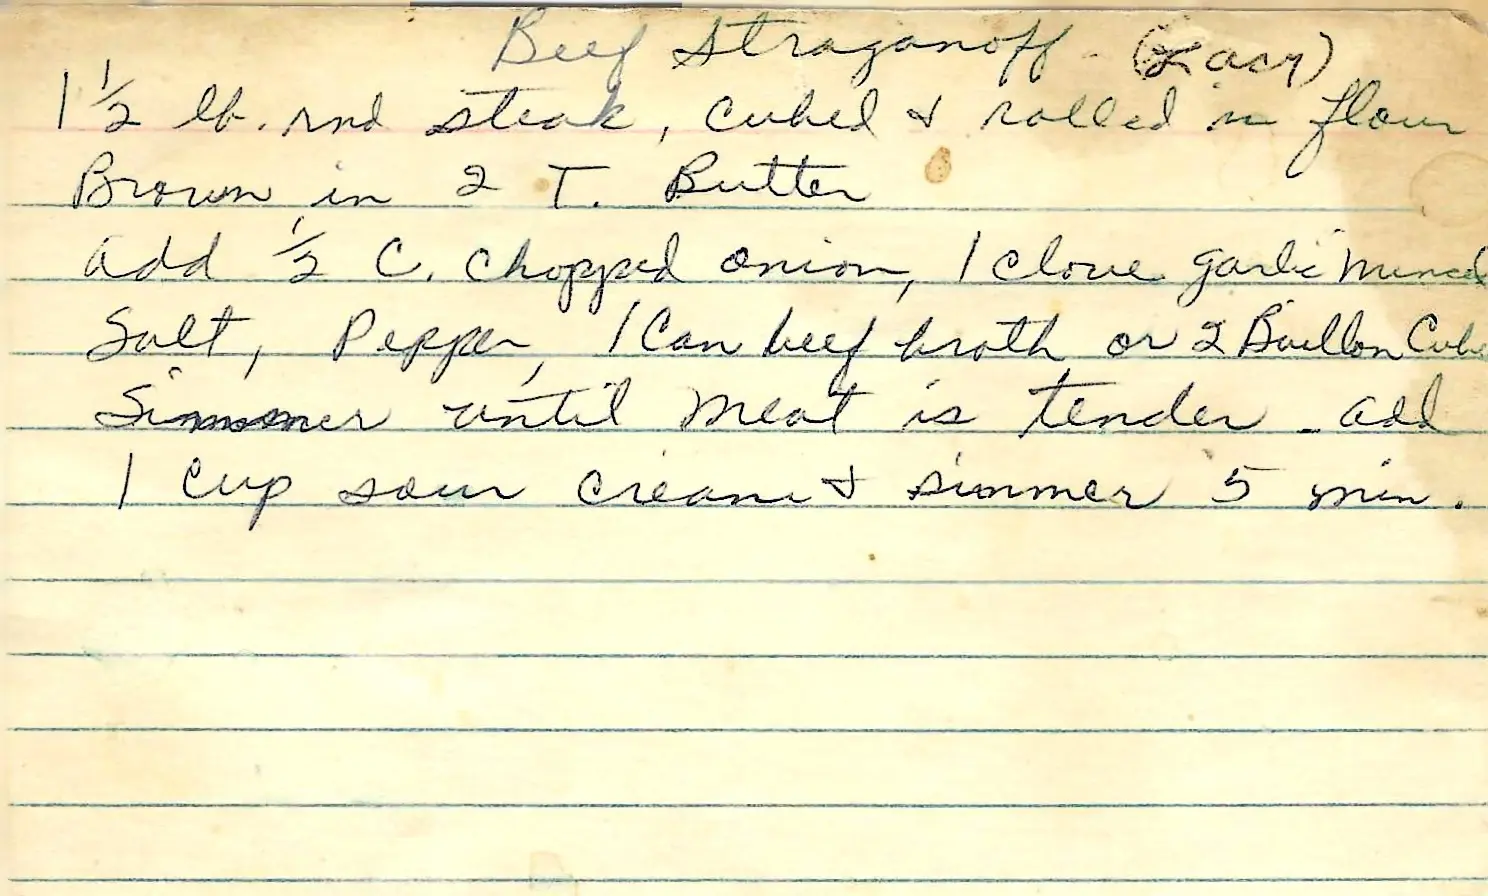 Beef Straganoff - (Lacy)
1 1/2 lb. rnd steak, cubed & rolled in flour
Brown in 2 T. Butter
add 1/2 C. chopped onion, 1 clove garlic minced
Salt, Pepper, 1 Can beef broth or 2 Boullon Cube
Simmer until meat is tender - add
1 cup sour cream & simmer 5 min.